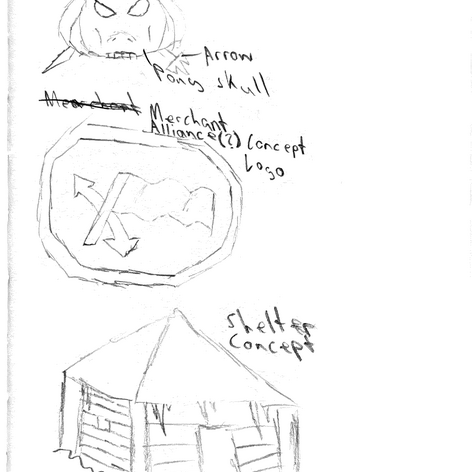 Arrow
Pony skull
Merchant
Merchant
Alliance(?) Concept
Logo
Shelter
Concept